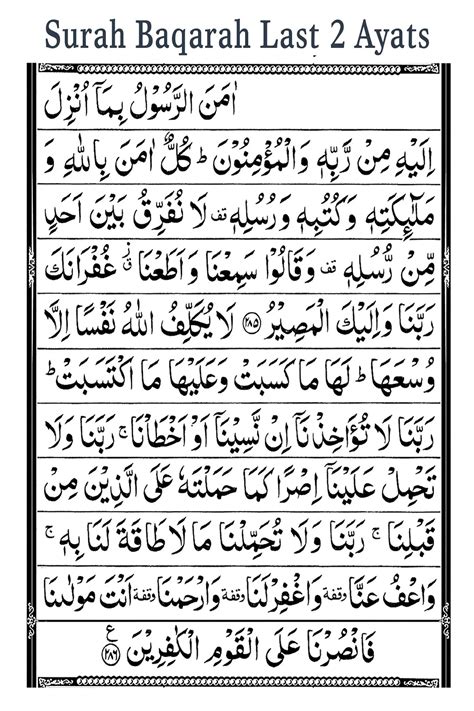 Surah Baqarah Last 2 Ayats
اٰمَنَ الرَّسُوْلُ بِمَاۤ اُنْزِلَ
اِلَيْهِ مِنْ رَّبِّهٖ وَالْمُؤْمِنُوْنَ ؕ كُلٌّ اٰمَنَ بِاللّٰهِ وَ
مَلٰٓئِكَتِهٖ وَكُتُبِهٖ وَرُسُلِهٖ قف لَا نُفَرِّقُ بَيْنَ اَحَدٍ
مِّنْ رُّسُلِهٖ قف وَقَالُوْا سَمِعْنَا وَاَطَعْنَا ق غُفْرَانَكَ
رَبَّنَا وَاِلَيْكَ الْمَصِيْرُ ﴿۲۸۵﴾ لَا يُكَلِّفُ اللّٰهُ نَفْسًا اِلَّا
وُسْعَهَا ؕ لَهَا مَا كَسَبَتْ وَعَلَيْهَا مَا اكْتَسَبَتْ ؕ
رَبَّنَا لَا تُؤَاخِذْنَاۤ اِنْ نَّسِيْنَاۤ اَوْ اَخْطَاْنَا ۚ رَبَّنَا وَلَا
تَحْمِلْ عَلَيْنَاۤ اِصْرًا كَمَا حَمَلْتَهٗ عَلَى الَّذِيْنَ مِنْ
قَبْلِنَا ۚ رَبَّنَا وَلَا تُحَمِّلْنَا مَا لَا طَاقَةَ لَنَا بِهٖ ۚ
وَاعْفُ عَنَّا وقفة وَاغْفِرْ لَنَا وقفة وَارْحَمْنَا وقفة اَنْتَ مَوْلٰىنَا
فَانْصُرْنَا عَلَى الْقَوْمِ الْكٰفِرِيْنَ ع ﴿۲۸۶﴾